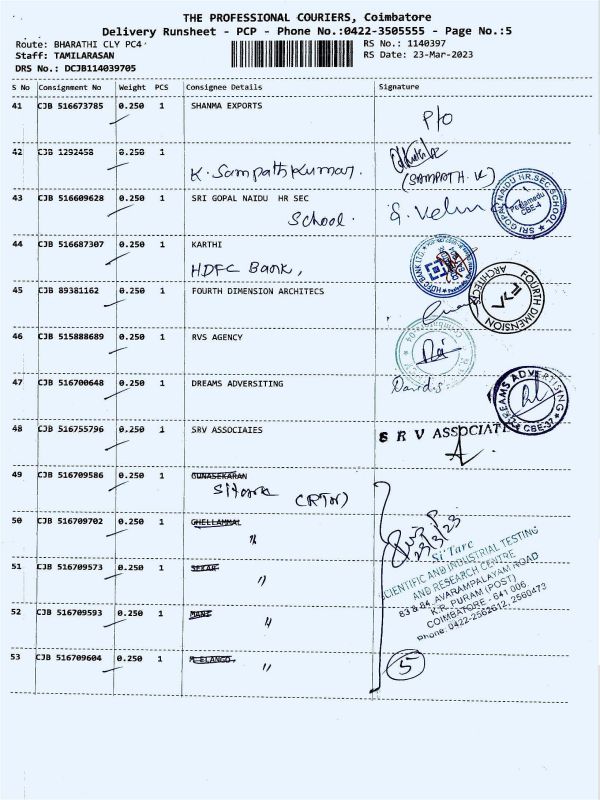 THE PROFESSIONAL COURIERS, Coimbatore
Delivery Runsheet - PCP - Phone No.:0422-3505555 - Page No.:5
Route: BHARATHI CLY PC4
RS No.: 1140397
Staff: TAMILARASAN
RS Date: 23-Mar-2023
DRS No.: DCJB114039705
S No Consignment No Weight PCS Consignee Details Signature
41 CJB 516673785 0.250 1 SHANMA EXPORTS
P/o
42 CJB 1292458 0.250 1
K. Sampath Kumar.
(SAMPATH. K)
43 CJB 516609628 0.250 1 SRI GOPAL NAIDU HR SEC
School.
SRI GOPAL NAIDU HR.SEC SCHOOL
Peelamedu
CBE-4
44 CJB 516687307 0.250 1 KARTHI
HDFC Bank,
HDFC BANK LTD.
45 CJB 89381162 0.250 1 FOURTH DIMENSION ARCHITECS
FOURTH DIMENSION ARCHITECTS
46 CJB 515888689 0.250 1 RVS AGENCY
47 CJB 516700648 0.250 1 DREAMS ADVERSITING
DREAMS ADVERTISING
CBE-37
48 CJB 516755796 0.250 1 SRV ASSOCIAIES
S R V ASSOCIATE
49 CJB 516709586 0.250 1 GUNASEKARAN
Sitarc
50 CJB 516709702 0.250 1 CHELLAMMAL
"
23/3/23
51 CJB 516709573 0.250 1 SEKAR
"
Si'Tarc
SCIENTIFIC AND INDUSTRIAL TESTING
AND RESEARCH CENTRE
83 & 84, AVARAMPALAYAM ROAD
K.R. PURAM (POST)
COIMBATORE - 641 006.
Phone: 0422-2562612, 2560473
52 CJB 516709593 0.250 1 MANI
"
53 CJB 516709604 0.250 1 M ELANGO
"
5